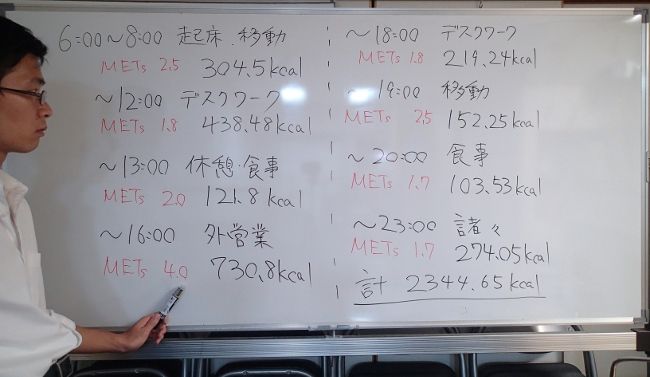 6:00~8:00 起床・移動
METs 2.5 304.5kcal
~12:00 デスクワーク
METs 1.8 438.48kcal
~13:00 休憩・食事
METs 2.0 121.8kcal
~16:00 外営業
METs 4.0 730.8kcal
~18:00 デスクワーク
METs 1.8 219.24kcal
~19:00 移動
METs 2.5 152.25kcal
~20:00 食事
METs 1.7 103.53kcal
~23:00 諸々
METs 1.7 274.05kcal
計 2344.65kcal